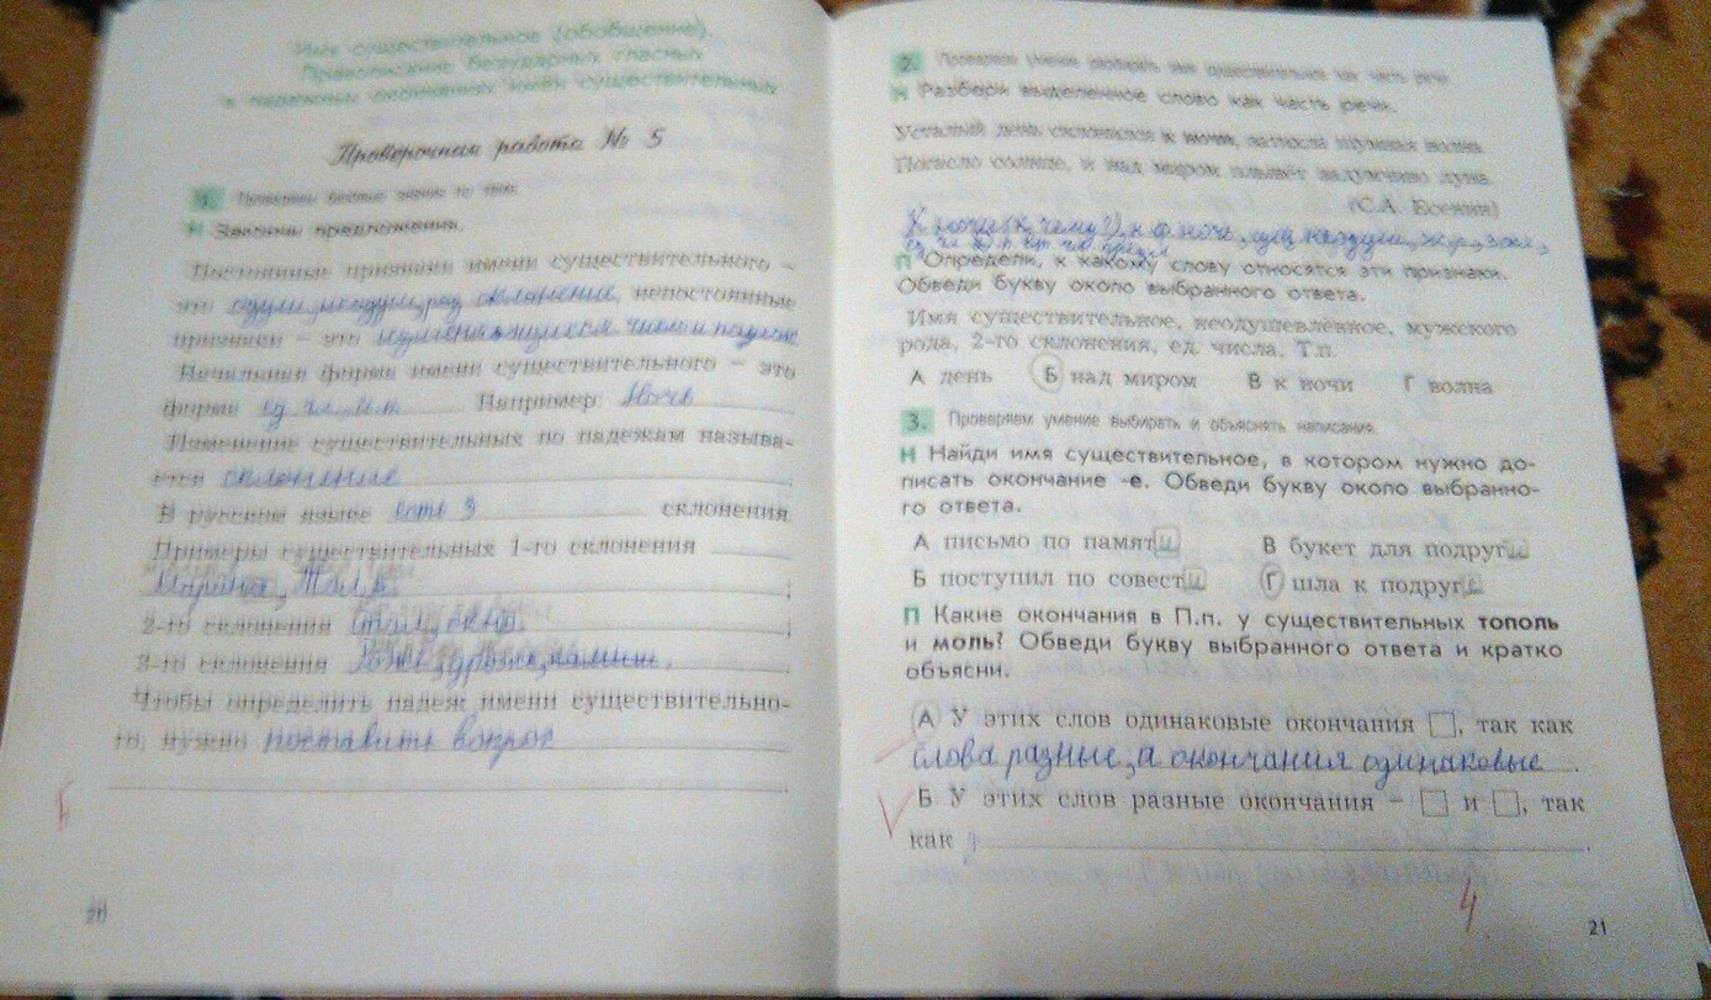 Имя существительное (обобщение).
Правописание безударных гласных
в падежных окончаниях имён существительных
Проверочная работа № 5
1. Проверяем базовые знания по теме.
Н Закончи предложения.
Постоянные признаки имени существительного –
это одуш, неодуш, род, склонение, непостоянные
признаки – это число и падеж
Начальная форма имени существительного – это
форма ед. ч., И.п. Например: Ночь
Изменение существительных по падежам называ-
ется склонение
В русском языке есть 3 склонения.
Примеры существительных 1-го склонения
Марина, ;
2-го склонения стол, окно ;
3-го склонения
Чтобы определить падеж имени существительно-
го, нужно поставить вопрос
20
2. Проверяем умение разбирать имя существительное как часть речи.
Н Разбери выделенное слово как часть речи.
Усталый день склонился к ночи, затихла шумная волна.
Погасло солнце, и над миром плывёт задумчиво луна.
(С.А. Есенин)
К ночи (к чему?), н.ф. ночь, неодуш, ж.р., 3 скл,
ед. ч.
П Определи, к какому слову относятся эти признаки.
Обведи букву около выбранного ответа.
Имя существительное, неодушевлённое, мужского
рода, 2-го склонения, ед. числа, Т.п.
А день Б над миром В к ночи Г волна
3. Проверяем умение выбирать и объяснять написания.
Н Найди имя существительное, в котором нужно до-
писать окончание -е. Обведи букву около выбранно-
го ответа.
А письмо по памяти В букет для подруги
Б поступил по совести Г шла к подруге
П Какие окончания в П.п. у существительных тополь
и моль? Обведи букву выбранного ответа и кратко
объясни.
А У этих слов одинаковые окончания , так как
слова разные, а окончания одинаковые .
Б У этих слов разные окончания – и , так
как .
4
21